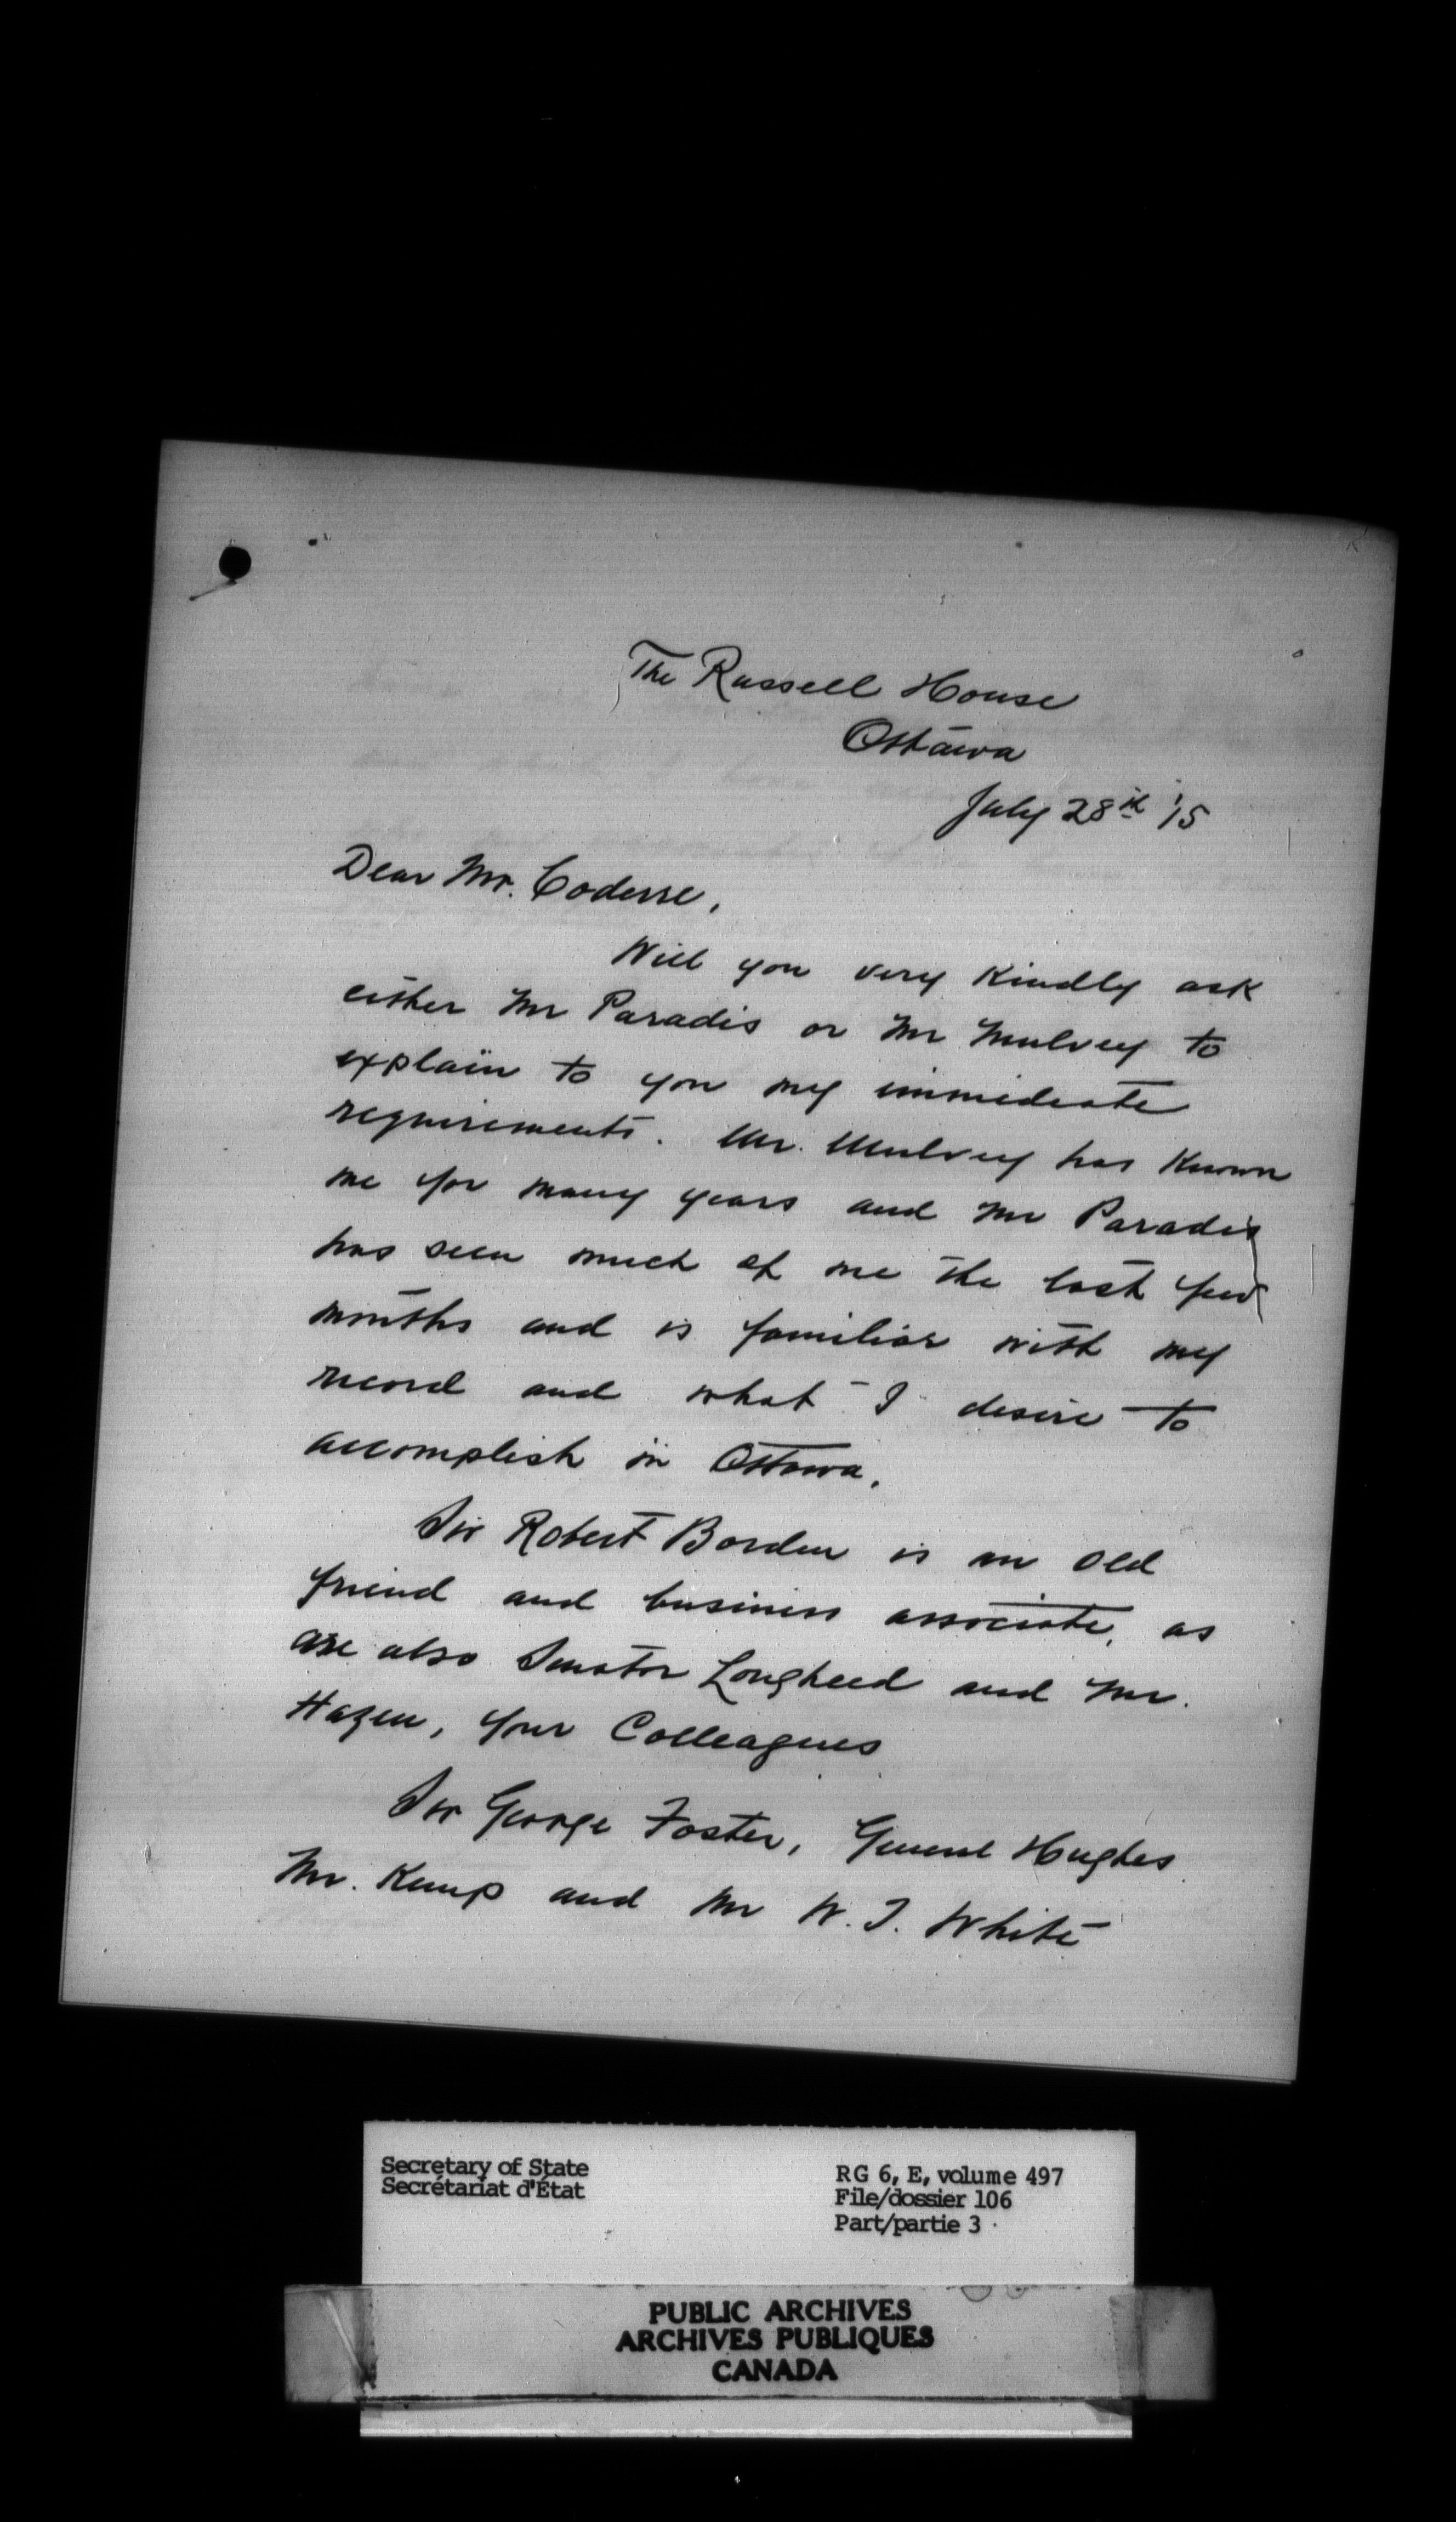 The Russell House
Ottawa
July 28th '15
Dear Mr. Coderre,
Will you very kindly ask
either Mr Paradis or Mr Mulvey to
explain to you my immediate
requirements. Mr. Mulvey has known
me for many years and Mr Paradis
has seen much of me the last few
months and is familiar with my
record and what I desire to
accomplish in Ottawa.
Sir Robert Borden is an old
friend and business associate, as
are also Senator Lougheed and Mr.
Hazen, your Colleagues
Sir George Foster, General Hughes
Mr. Kemp and Mr W. T. White
Secretary of State
Secrétariat d'État
RG 6, E, volume 497
File/dossier 106
Part/partie 3
PUBLIC ARCHIVES
ARCHIVES PUBLIQUES
CANADA